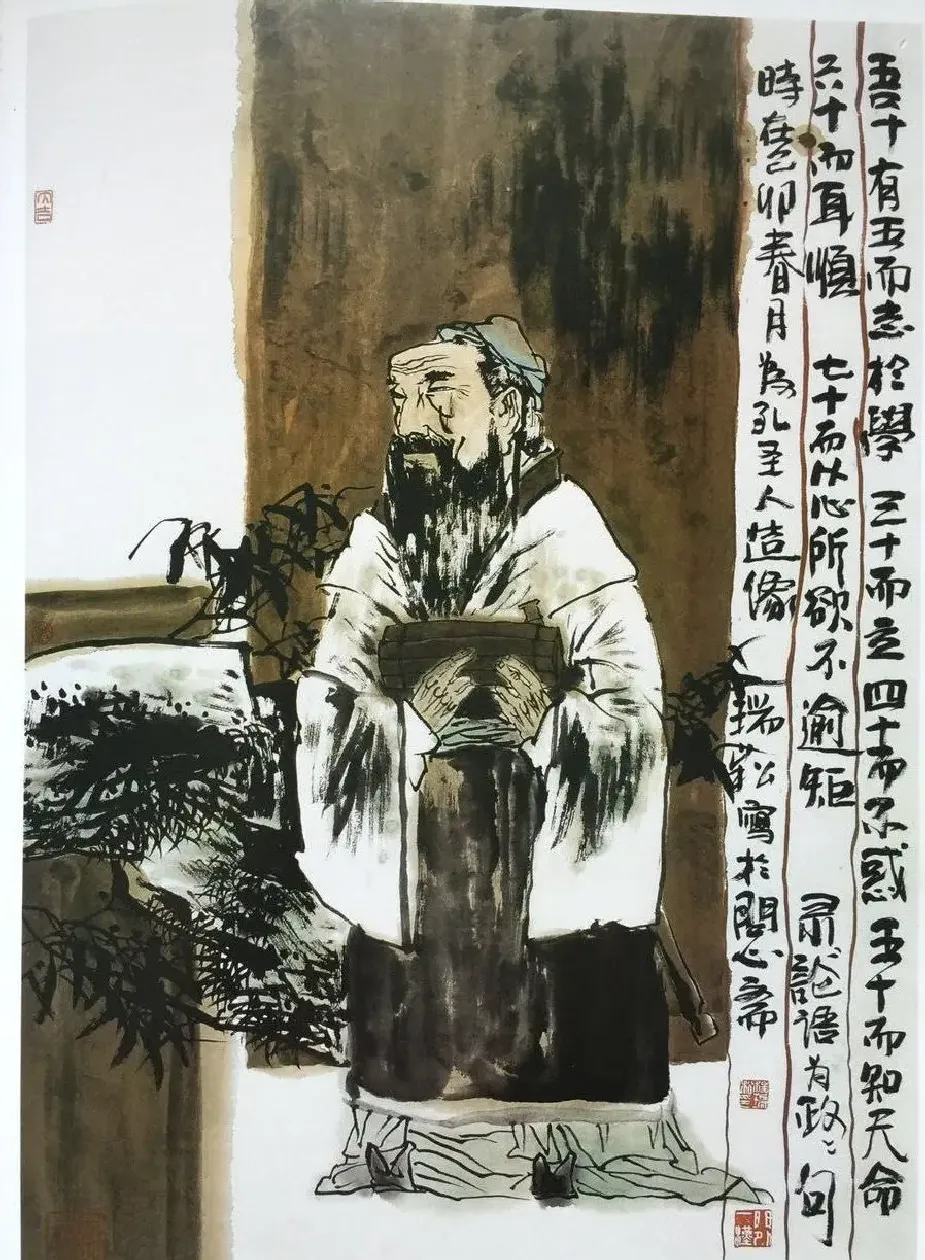 吾十有五而志於學 三十而立 四十而不惑 五十而知天命
六十而耳順 七十而从心所欲不逾矩 論語为政之句
時在己卯春月为孔圣人造像 瑞松寫於問心斋
大吉